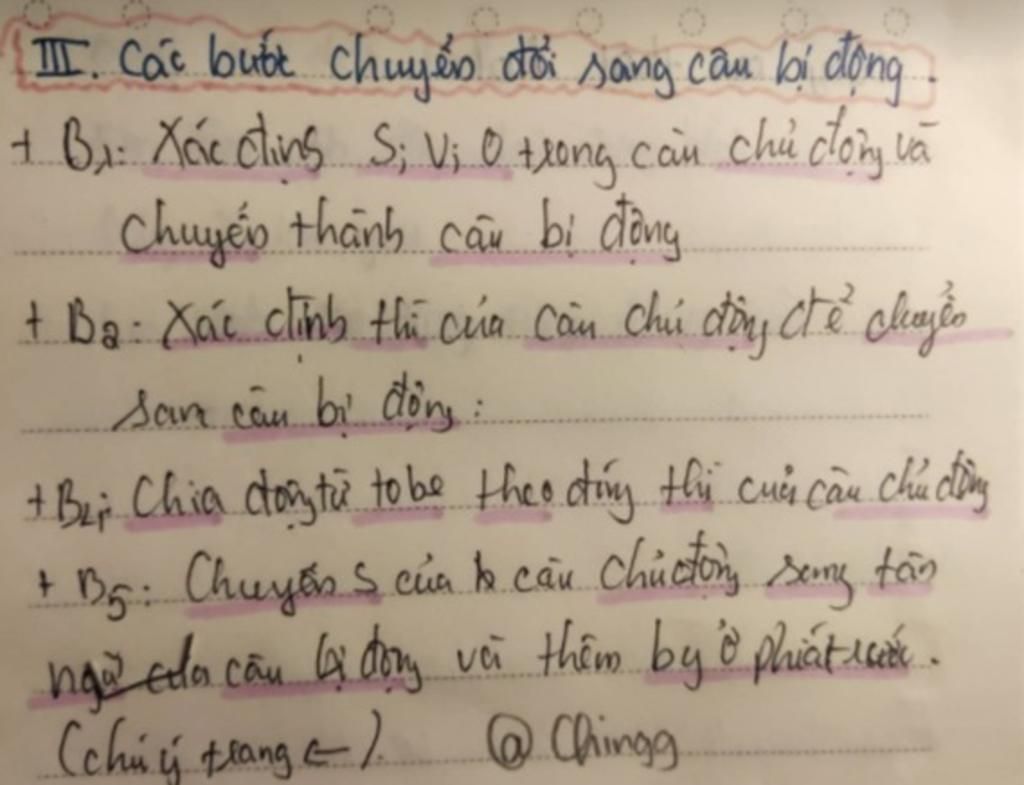 III. Các bước chuyển đổi sang câu bị động.
+ B1: Xác định S; V; O trong câu chủ động và
chuyển thành câu bị động
+ B2: Xác định thì của câu chủ động để chuyển
san câu bị động:
+ B4: Chia động từ tobe theo đúng thì của câu chủ động
+ B5: Chuyển S của câu chủ động sang tân
ngữ của câu bị động và thêm by ở phía trước.
(chú ý trang ←). @Chingg